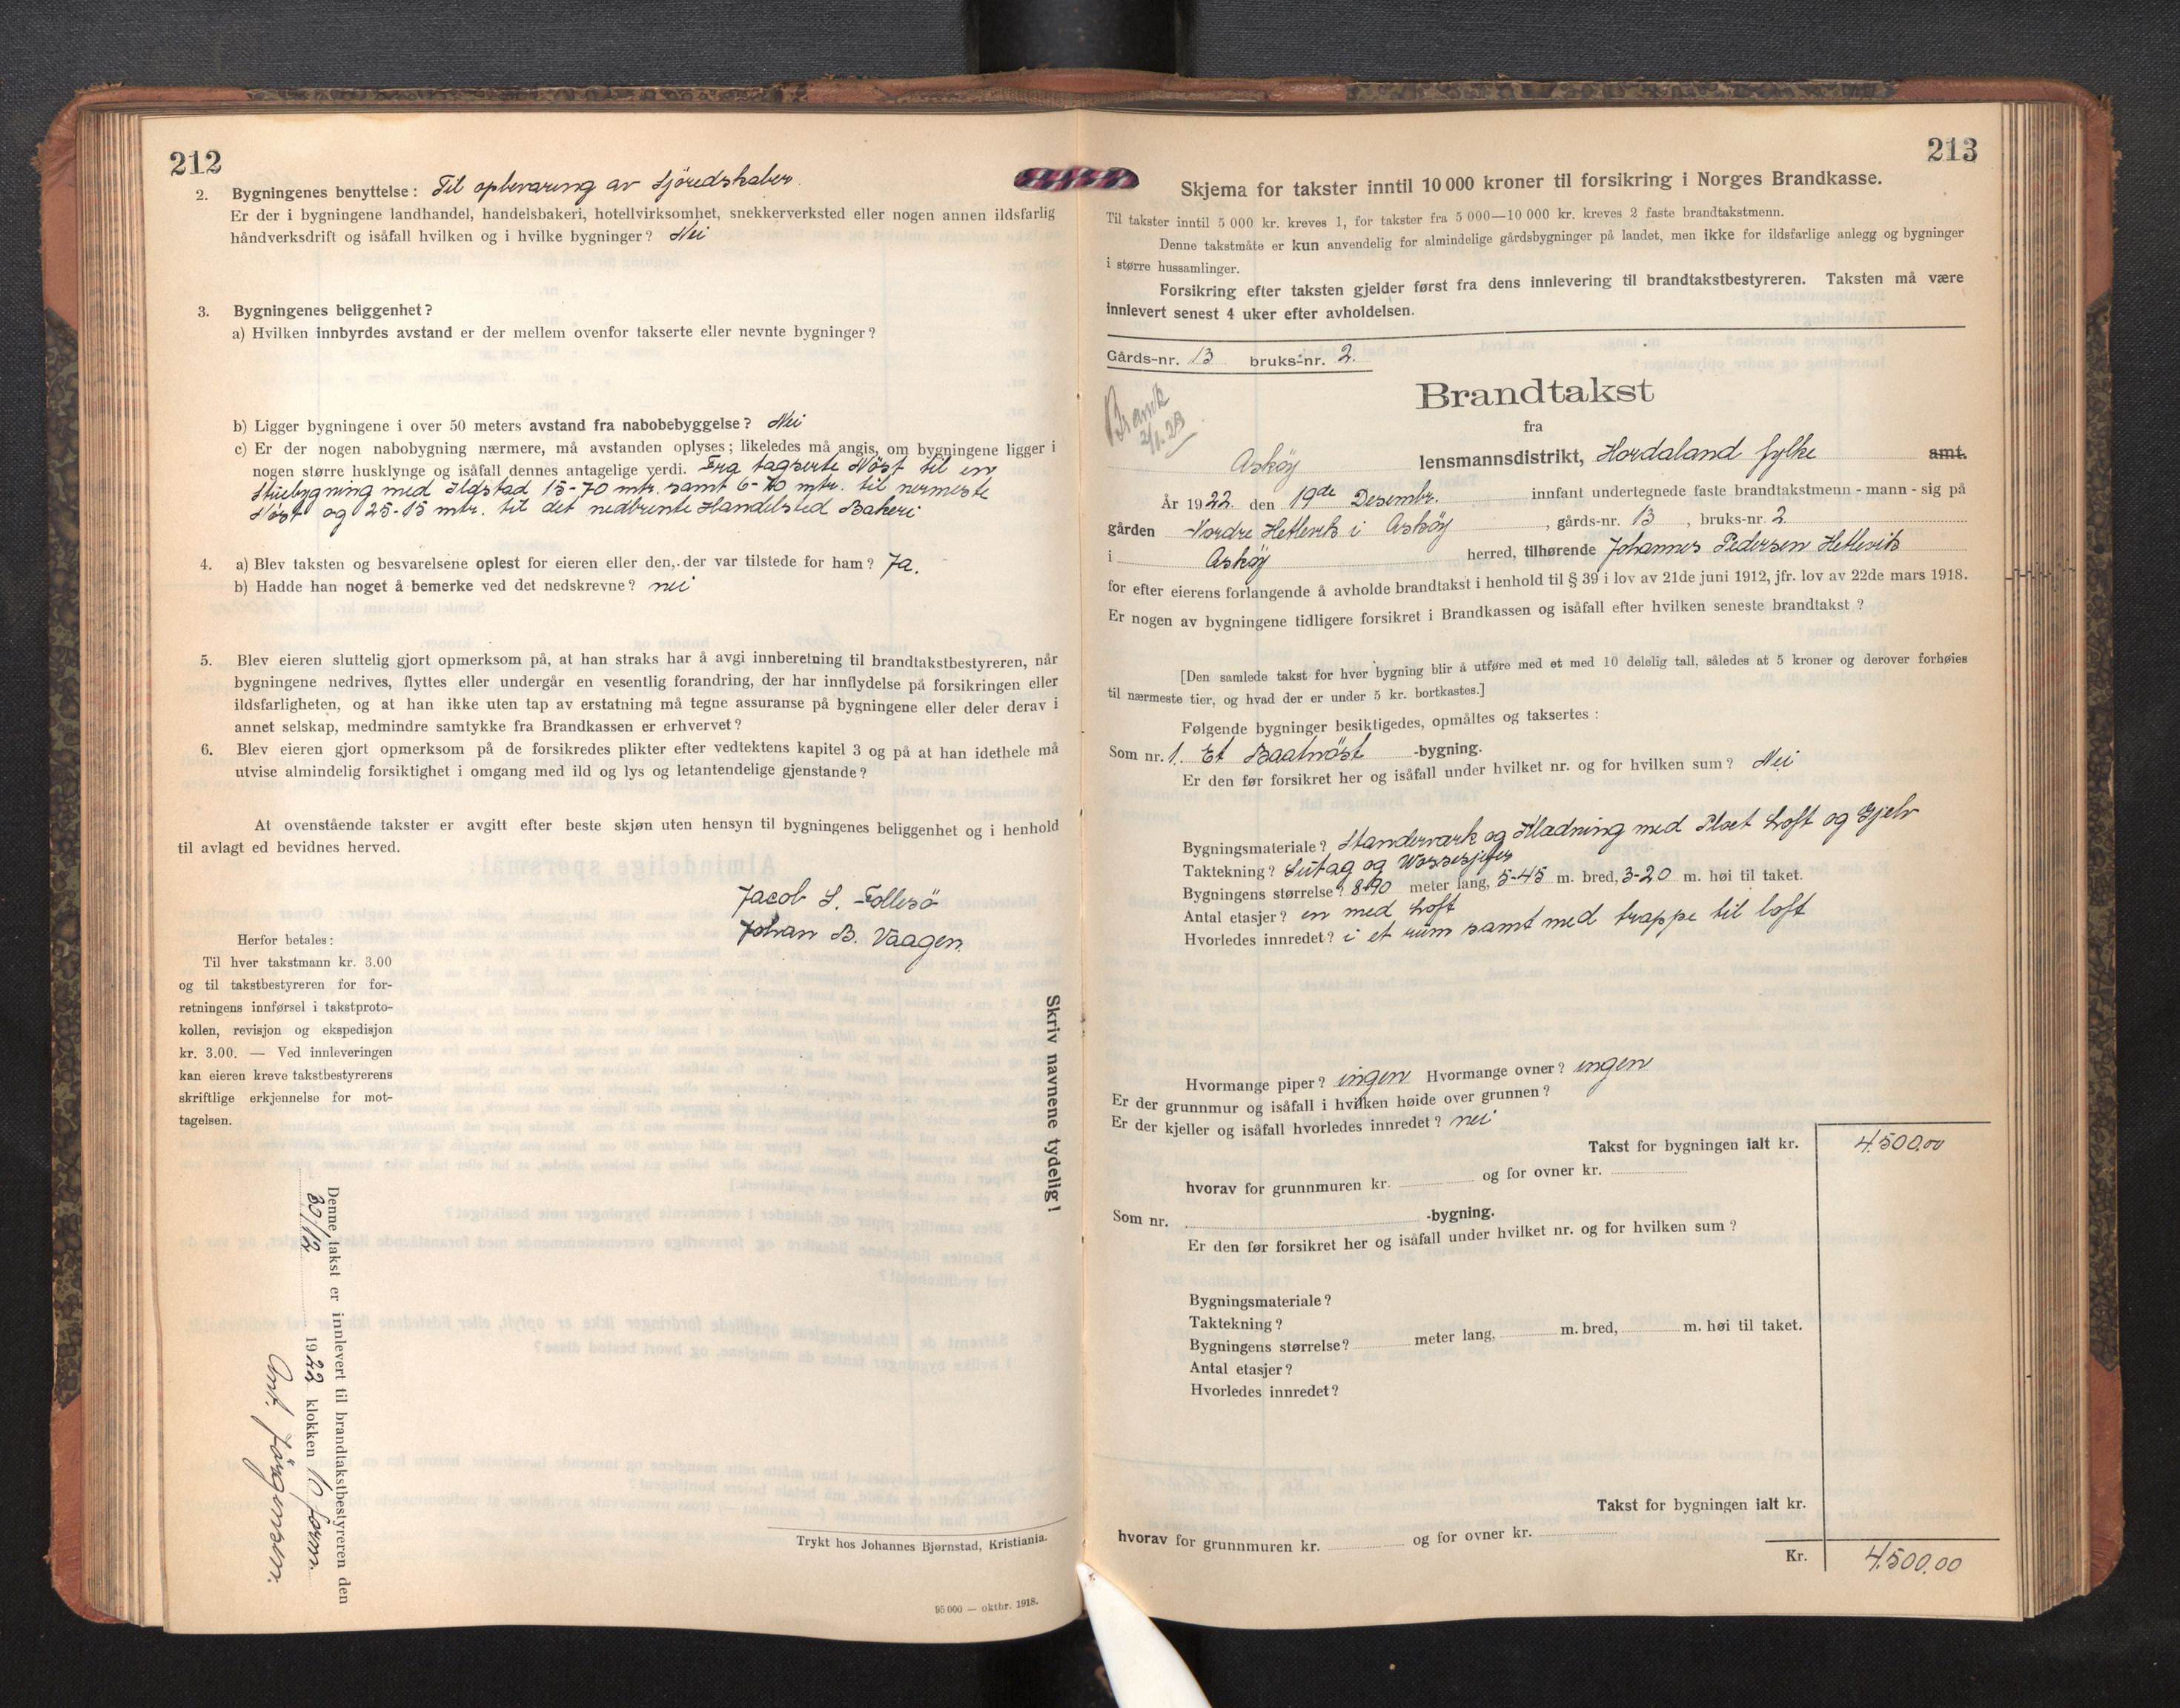 212
2. Bygningenes benyttelse: Til opbevaring av Sjöredskaber.
Er der i bygningene landhandel, handelsbakeri, hotellvirksomhet, snekkerverksted eller nogen annen ildsfarlig
håndverksdrift og isåfall hvilken og i hvilke bygninger? Nei
3. Bygningenes beliggenhet?
a) Hvilken innbyrdes avstand er der mellem ovenfor takserte eller nevnte bygninger?
b) Ligger bygningene i over 50 meters avstand fra nabobebyggelse? Nei
c) Er der nogen nabobygning nærmere, må avstanden oplyses; likeledes må angis, om bygningene ligger i
nogen større husklynge og isåfall dennes antagelige verdi. Fra tagserte Nöst til en
Stuebygning med Ildstad 15-70 mtr. samt 6-70 mtr. til nermeste
Nöst og 25-15 mtr. til det nedbrente Handelsted Bakeri
4. a) Blev taksten og besvarelsene oplest for eieren eller den, der var tilstede for ham? Ja.
b) Hadde han noget å bemerke ved det nedskrevne? nei
5. Blev eieren sluttelig gjort opmerksom på, at han straks har å avgi innberetning til brandtakstbestyreren, når
bygningene nedrives, flyttes eller undergår en vesentlig forandring, der har innflydelse på forsikringen eller
ildsfarligheten, og at han ikke uten tap av erstatning må tegne assuranse på bygningene eller deler derav i
annet selskap, medmindre samtykke fra Brandkassen er erhvervet?
6. Blev eieren gjort opmerksom på de forsikredes plikter efter vedtektens kapitel 3 og på at han idethele må
utvise almindelig forsiktighet i omgang med ild og lys og letantendelige gjenstande?
At ovenstående takster er avgitt efter beste skjøn uten hensyn til bygningenes beliggenhet og i henhold
til avlagt ed bevidnes herved.
Jacob S. Follesö
Johan B. Vaagen
Herfor betales:
Til hver takstmann kr. 3.00
og til takstbestyreren for for-
retningens innførsel i takstproto-
kollen, revisjon og ekspedisjon
kr. 3.00. — Ved innleveringen
kan eieren kreve takstbestyrerens
skriftlige erkjennelse for mot-
tagelsen.
Skriv navnene tydelig!
Denne takst er innlevert til brandtakstbestyreren den
30/12 1922 klokken 10 form.
Ant. Jörgensen.
Trykt hos Johannes Bjørnstad, Kristiania.
95 000 — oktbr. 1918.
213
Skjema for takster inntil 10 000 kroner til forsikring i Norges Brandkasse.
Til takster inntil 5 000 kr. kreves 1, for takster fra 5 000—10 000 kr. kreves 2 faste brandtakstmenn.
Denne takstmåte er kun anvendelig for almindelige gårdsbygninger på landet, men ikke for ildsfarlige anlegg og bygninger
i større hussamlinger.
Forsikring efter taksten gjelder først fra dens innlevering til brandtakstbestyreren. Taksten må være
innlevert senest 4 uker efter avholdelsen.
Gårds-nr. 13 bruks-nr. 2.
Brandtakst
fra
Askøy lensmannsdistrikt, Hordaland fylke amt.
År 1922 den 19de Desembr. innfant undertegnede faste brandtakstmenn - mann - sig på
gården Nordre Hetlevik i Askøy, gårds-nr. 13, bruks-nr. 2
i Askøy herred, tilhørende Johannes Pedersen Hetlevik
for efter eierens forlangende å avholde brandtakst i henhold til § 39 i lov av 21de juni 1912, jfr. lov av 22de mars 1918.
Er nogen av bygningene tidligere forsikret i Brandkassen og isåfall efter hvilken seneste brandtakst?
[Den samlede takst for hver bygning blir å utføre med et med 10 delelig tall, således at 5 kroner og derover forhøies
til nærmeste tier, og hvad der er under 5 kr. bortkastes.]
Følgende bygninger besiktigedes, opmåltes og taksertes:
Som nr. 1. Et Baatnöst -bygning.
Er den før forsikret her og isåfall under hvilket nr. og for hvilken sum? Nei
Bygningsmateriale? Standerværk og Klædning med Loft og
Taktekning? Sutag og
Bygningens størrelse? 8-90 meter lang, 5-45 m. bred, 3-20 m. høi til taket.
Antal etasjer? en med Loft
Hvorledes innredet? i et rum samt med trappe til loft
Hvormange piper? ingen Hvormange ovner? ingen
Er der grunnmur og isåfall i hvilken høide over grunnen?
Er der kjeller og isåfall hvorledes innredet? nei
Takst for bygningen ialt kr. 4500,00
hvorav for grunnmuren kr. og for ovner kr.
Som nr. -bygning.
Er den før forsikret her og isåfall under hvilket nr. og for hvilken sum?
Bygningsmateriale?
Taktekning?
Bygningens størrelse? meter lang, m. bred, m. høi til taket.
Antal etasjer?
Hvorledes innredet?
Takst for bygningen ialt kr.
hvorav for grunnmuren kr. og for ovner kr.
Kr. 4500,00